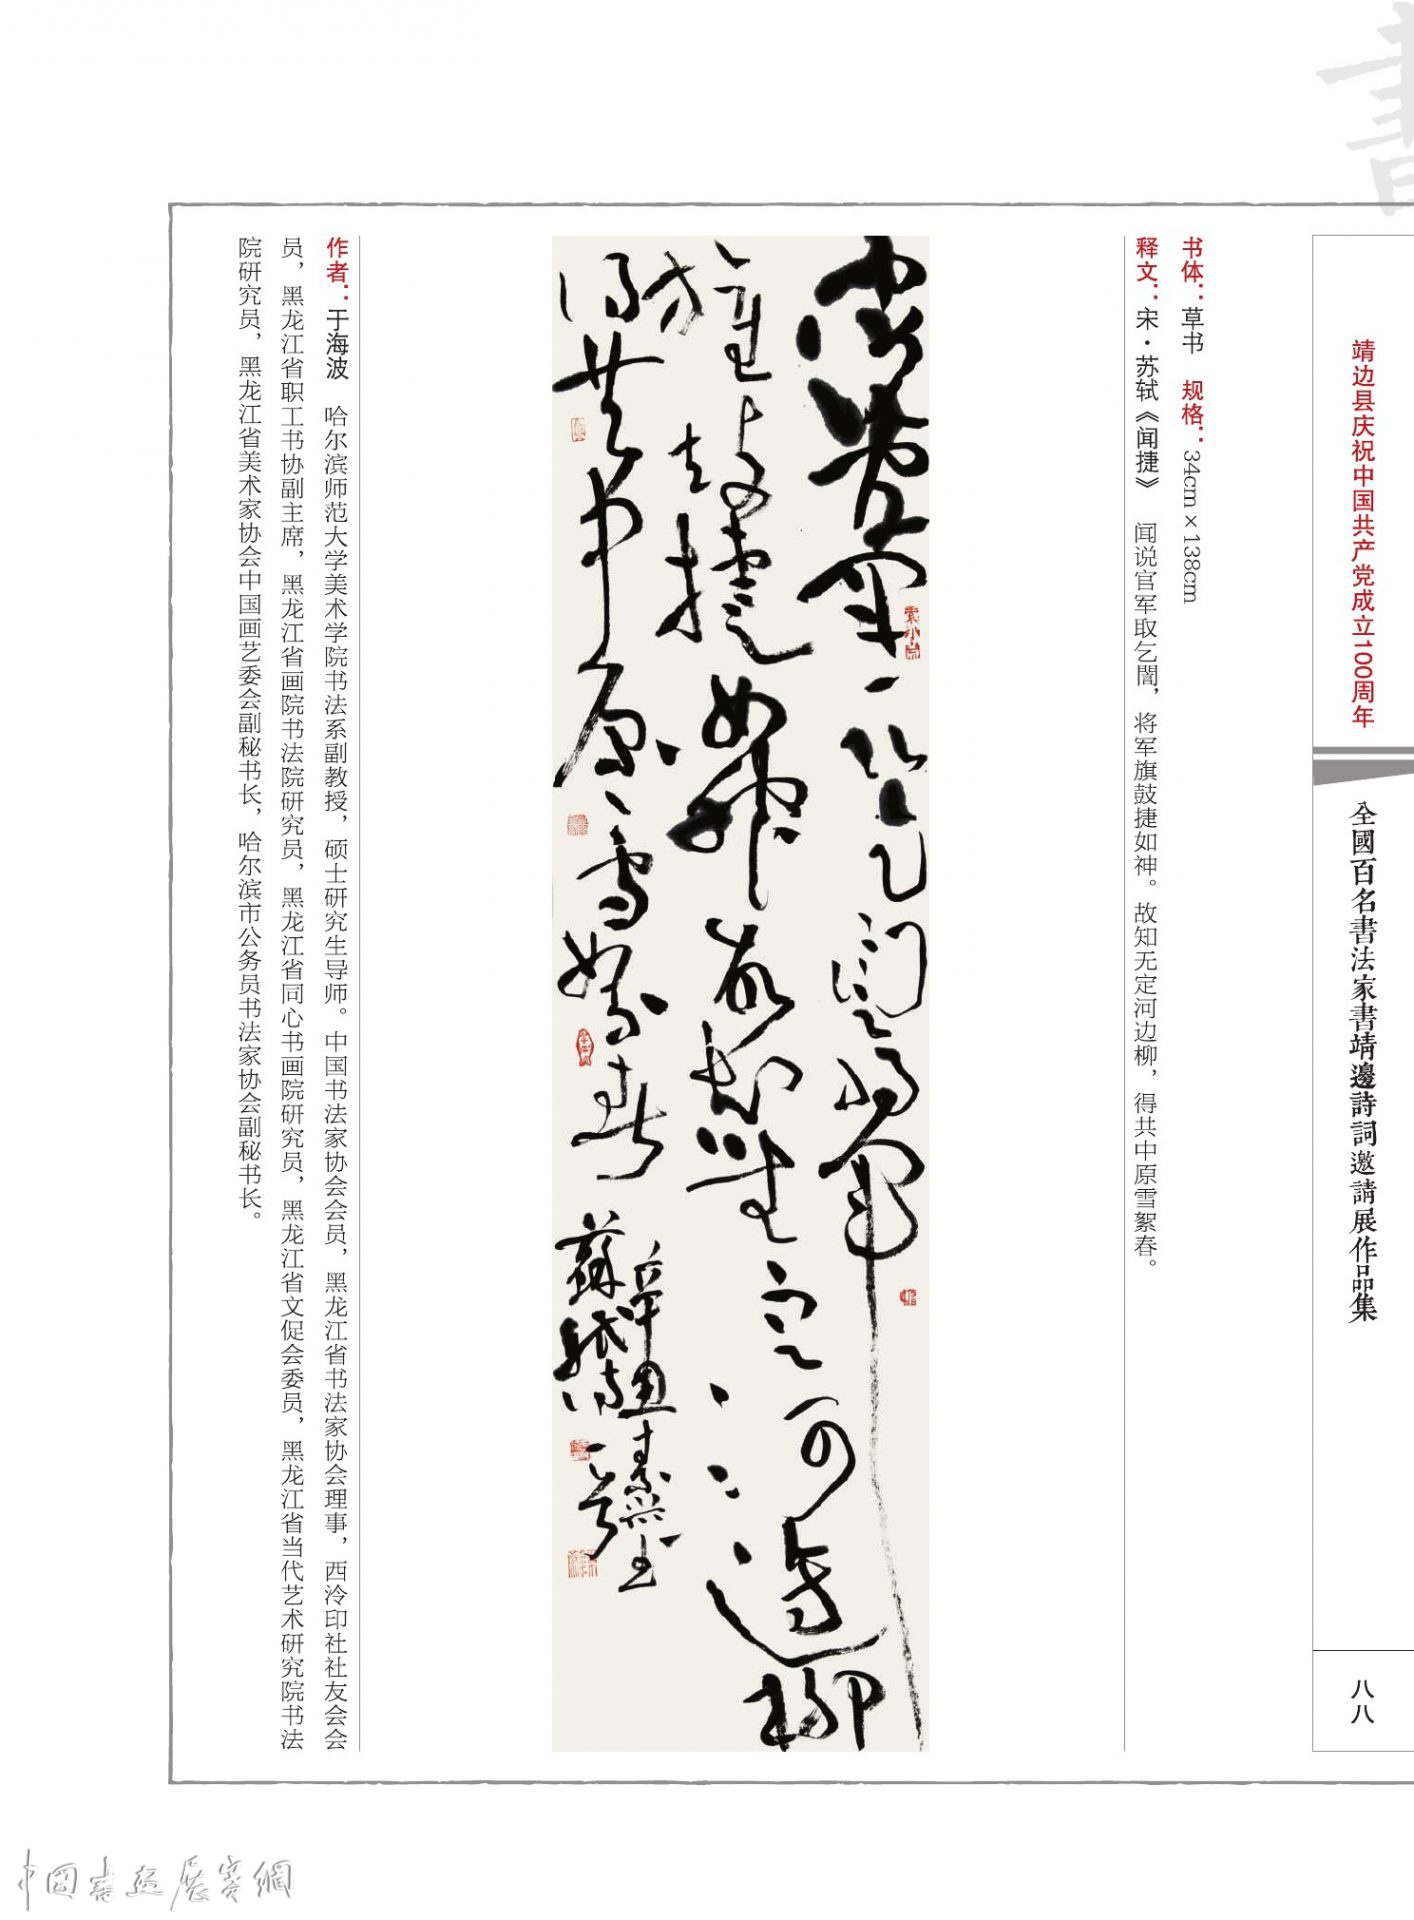 書
靖边县庆祝中国共产党成立100周年
全國百名書法家書靖邊詩詞邀請展作品集
八八
书体：草书　规格：34cm×138cm
释文：宋·苏轼《闻捷》　闻说官军取乞誾，将军旗鼓捷如神。故知无定河边柳，得共中原雪絮春。
聞說官軍取乞誾將軍
旗鼓捷如神故知無定河邊柳
得共中原雪絮春
蘇軾詩一首
作者：于海波　哈尔滨师范大学美术学院书法系副教授，硕士研究生导师。中国书法家协会会员，黑龙江省书法家协会理事，西泠印社社友会会
员，黑龙江省职工书协副主席，黑龙江省画院书法院研究员，黑龙江省同心书画院研究员，黑龙江省文促会委员，黑龙江省当代艺术研究院书法
院研究员，黑龙江省美术家协会中国画艺委会副秘书长，哈尔滨市公务员书法家协会副秘书长。
中國書畫展賽網